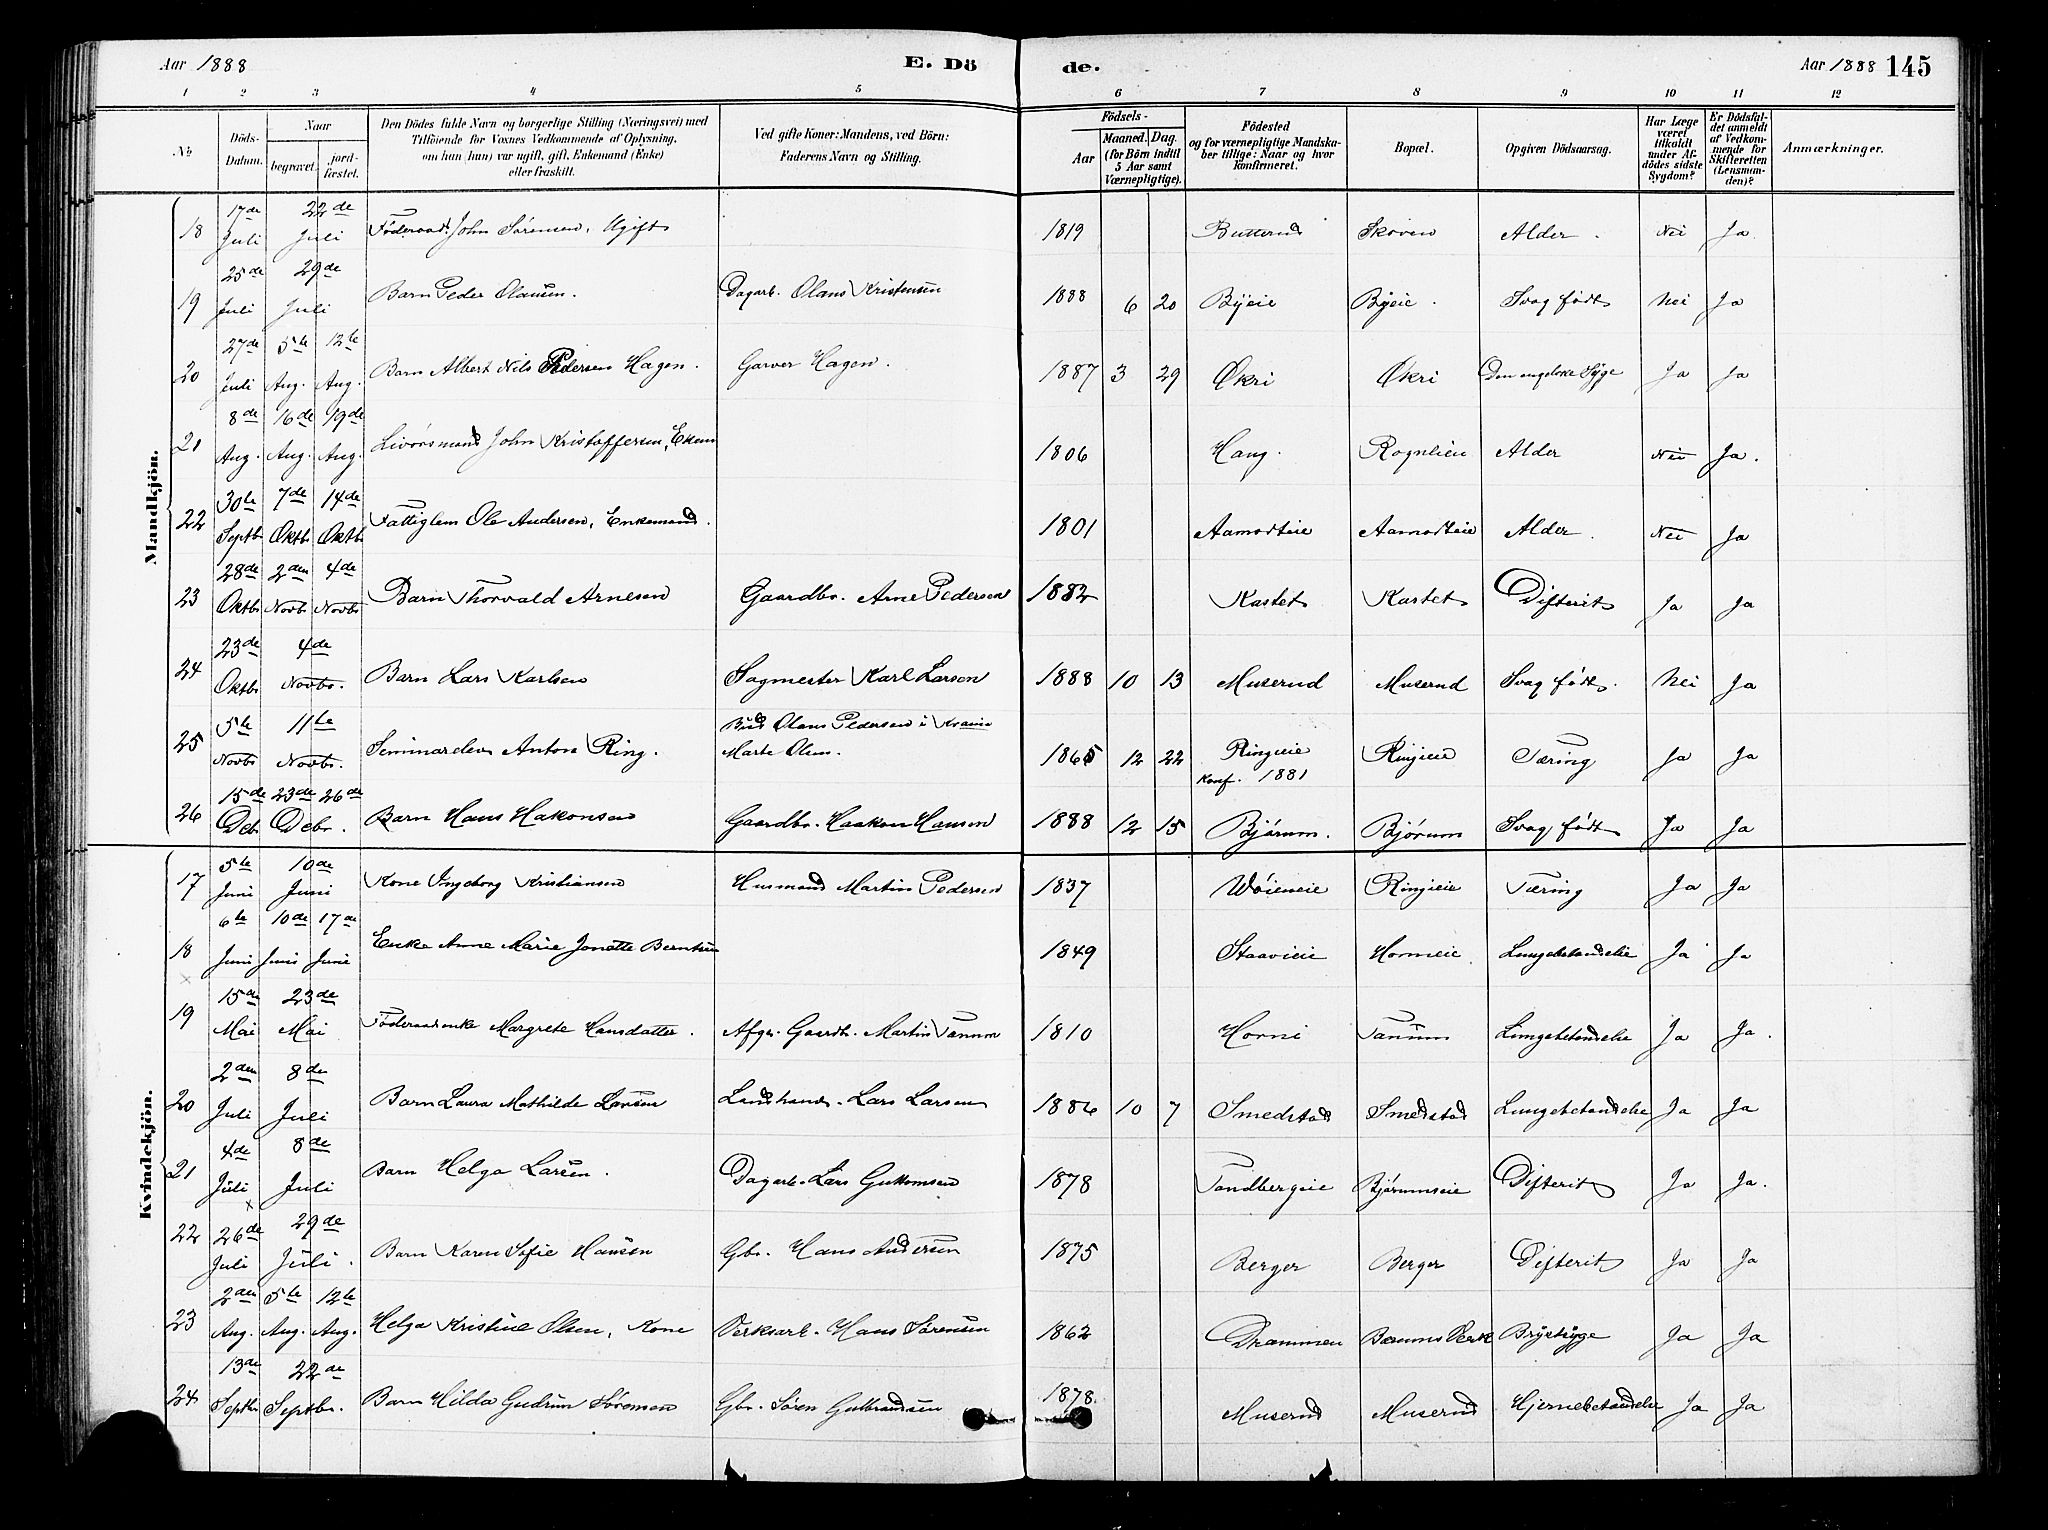 Aar 1888 E. Dö de. Aar 1888 145
1 2 3 4 5 6 7 8 9 10 11 12
No
Döds-Datum.
Naar
begravet.
jordfæstet.
Den Dödes fulde Navn og borgerlige Stilling (Næringsvei) med
Tilföiende for Voxnes Vedkommende af Oplysning,
om han (hun) var ugift, gift, Enkemand (Enke)
eller fraskilt.
Ved gifte Koner: Mandens, ved Börn:
Faderens Navn og Stilling.
Födsels-
Aar
Maaned. Dag.
(for Börn indtil
5 Aar samt
Værnepligtige).
Födested
og for værnepligtige Mandska-
ber tillige: Naar og hvor
konfirmeret.
Bopæl.
Opgiven Dödsaarsag.
Har Læge
været
tilkaldt
under Af-
dödes sidste
Sygdom?
Er Dödsfal-
det anmeldt
af Vedkom-
mende for
Skifteretten
(Lensman-
den)?
Anmærkninger.
Mandkjön.
18 17de Juli 22de Juli Föderaad. John Sørensen, Ugift 1819 Butterud Skoven Alder. Nei Ja
19 25de Juli 29de Juli Barn Peder Olausen. Dagarb. Olaus Kristensen 1888 6 20 Byeie Byeie. Svag født Nei Ja
20 27de Juli 5te Aug. 12te Aug. Barn Albert Nils Pedersen Hagen. Garver Hagen. 1887 3 29 Økri Økri Den engelske Syge Ja Ja
21 8de Aug. 16de Aug. 19de Aug. Livörsmand John Kristoffersen, Ekem 1806 Haug. Rognlien Alder Nei Ja.
22 30te Septb. 7de Oktb. 14de Oktb. Fattiglem Ole Andersen, Enkemand. 1801 Aamodteie Aamodteie Alder. Nei Ja
23 28de Oktb. 2den Novbr. 4de Novbr. Barn Thorvald Arnesen Gaardbr. Arne Pedersen 1882 Kastet Kastet Difterit Ja Ja
24 23de Oktb. 4de Novbr. Barn Lars Karlsen Sagmester Karl Larsen 1888 10 13 Muserud Muserud Svag født. Nei Ja
25 5te Novbr. 11te Novbr. Seminarelev Anton Ring. Olaus Pedersen i
Marte Olsen. 1865 12 22 Ringieie Ringieie Tæring Ja Ja
Konf. 1881
26 15de Debr. 23de Debr. 26de Barn Hans Hakonsen Gaardbr. Haakon Hansen 1888 12 15 Bjørum. Bjørum Svag født Ja Ja
Kvindekjön.
17 5te Juni 10de Juni Kone Ingeborg Kristiansen Husmand Martin Pedersen 1837 Wøieneie Ringieie Tæring Ja Ja
18 6te Juni 10de Juni 17de Juni Enke Anne Marie Jonette Berntsen 1849 Staavieie Horneie Lungebetændelse Ja Ja
19 15de Mai 23de Mai Föderaadsenke Margrete Hansdatter. Afgr. Gaardb. Martin Tanum 1810 Horni Tanum Lungebetændelse Ja Ja.
20 2den Juli 8de Juli Barn Laura Mathilde Larsen Landhand. Lars Larsen 1886 10 7 Smedstad Smedstad Lungebetændelse Ja Ja
21 4de Juli 8de Juli Barn Helga Larsen. Dagarb. Lars Guttormsen 1878 Tandbergeie Bjørumseie Difterit Ja Ja.
22 26de Juli 29de Juli. Barn Karen Sofie Hansen Gbr. Hans Andersen 1875 Berger Berger Difterit Ja Ja
23 2den Aug. 5te Aug. 12te Aug. Helga Kristine Olsen, Kone Verksarb. Hans Sørensen 1862 Drammen Bærums Værk Brystsyge Ja Ja
24 13de Septbr. 22de Septbr. Barn Hilda Gudrun Sørensen Gbr. Søren Gulbrandsen 1878 Muserud Muserud Hjernebetændelse Ja Ja